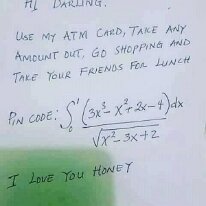 HI DARLING.
USE MY ATM CARD, TAKE ANY
AMOUNT OUT, GO SHOPPING AND
TAKE YOUR FRIENDS FOR LUNCH
PIN CODE: ∫₀¹ (3x³ - x² + 2x - 4)dx / √(x² - 3x + 2)
I LOVE YOU HONEY